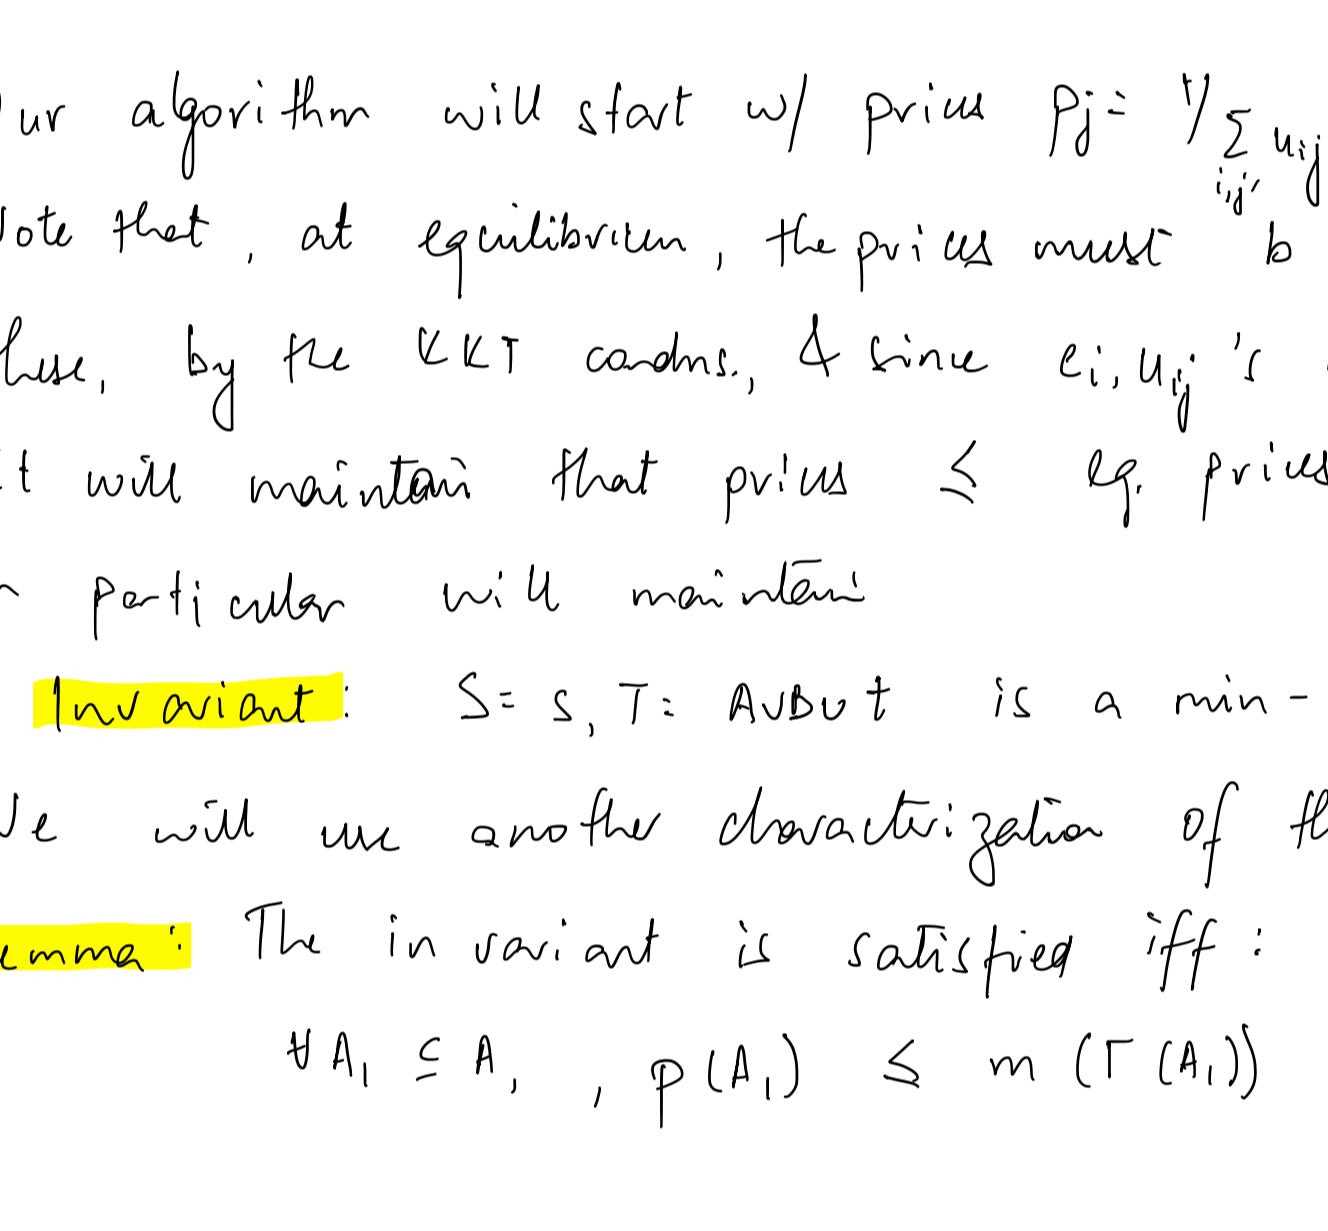 ur algorithm will start w/ prices Pj = 1/Σ uij
i,j'
ote that, at equilibrium, the prices must b
hese, by the KKT condns., & since ei, uij's
t will maintain that prices ≤ eq. prices
particular will maintain
Invariant: S = s, T = A∪B∪t is a min-
e will use another characterization of th
emma: The invariant is satisfied iff:
∀ A₁ ⊆ A, , p(A₁) ≤ m (Γ (A₁))